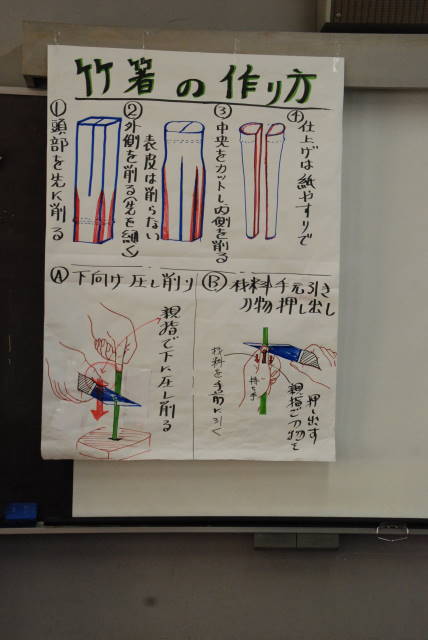 竹箸の作り方
①頭部を先に削る
②外側を削る(先を細く)
表皮は削らない
③中央をカットし内側を削る
④仕上げは紙やすりで
Ⓐ下向け圧し削り
親指で下に圧し削る
Ⓑ材料手元引き
刃物押し出し
材料を手前に引く
持ち手
押し出す
親指で刃物を